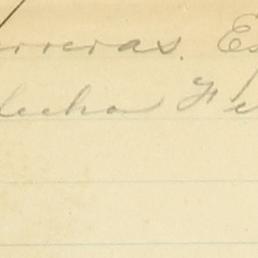 rreras. Es
decha Fe